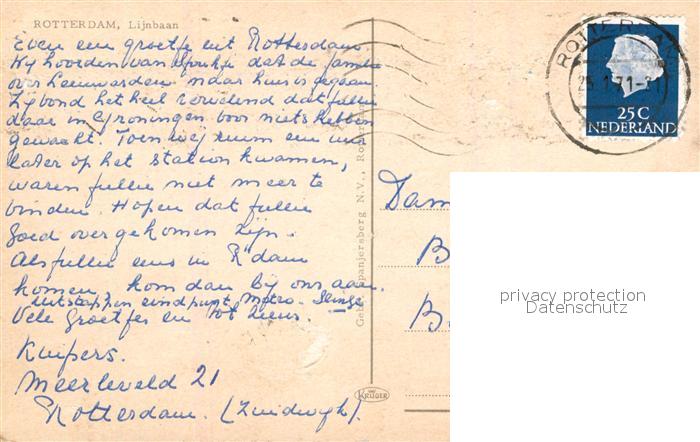 ROTTERDAM, Lijnbaan
Even een groetje uit Rotterdam.
Wij hoorden van Sjoukje dat de familie
over Leeuwarden naar huis is gegaan.
Zij vond het heel vervelend dat jullie
daar in Groningen voor niets hebben
gewacht. Toen wij ruim een uur
later op het station kwamen,
waren jullie niet meer te
vinden. Hopen dat jullie
goed overgekomen zijn.
Als jullie eens in R'dam
komen, kom dan bij ons aan.
uitstappen eindpunt Metro - Slinge
Vele groetjes en tot ziens.
Kuipers.
Meerleveld 21
Rotterdam. (Zuidwijk).
Gebr. Spanjersberg N.V., Rotterdam
KRUGER
ROTTERDAM
25.1.71
25 C
NEDERLAND
Dam
B
B
privacy protection
Datenschutz